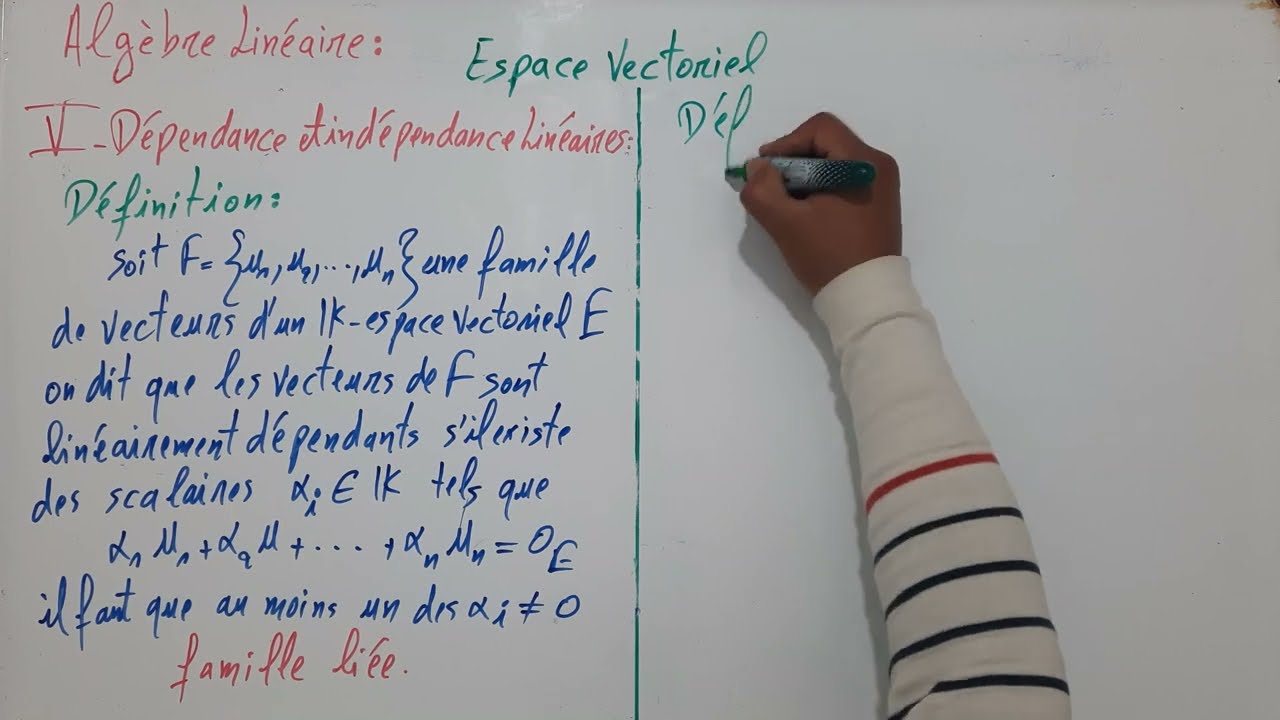 Algèbre Linéaire:
Espace Vectoriel
V - Dépendance et indépendance Linéaires:
Définition:
soit F = {u₁, u₂, ..., uₙ} une famille
de vecteurs d'un IK-espace vectoriel E
on dit que les vecteurs de F sont
linéairement dépendants s'il existe
des scalaires αᵢ ∈ IK tels que
α₁ u₁ + α₂ u + .... + αₙ uₙ = 0_E
il faut que au moins un des αᵢ ≠ 0
famille liée.
Déf